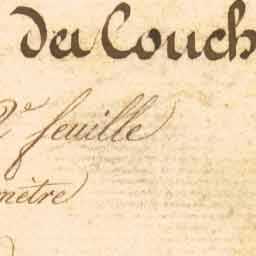 du Couch
2e feuille
mètre